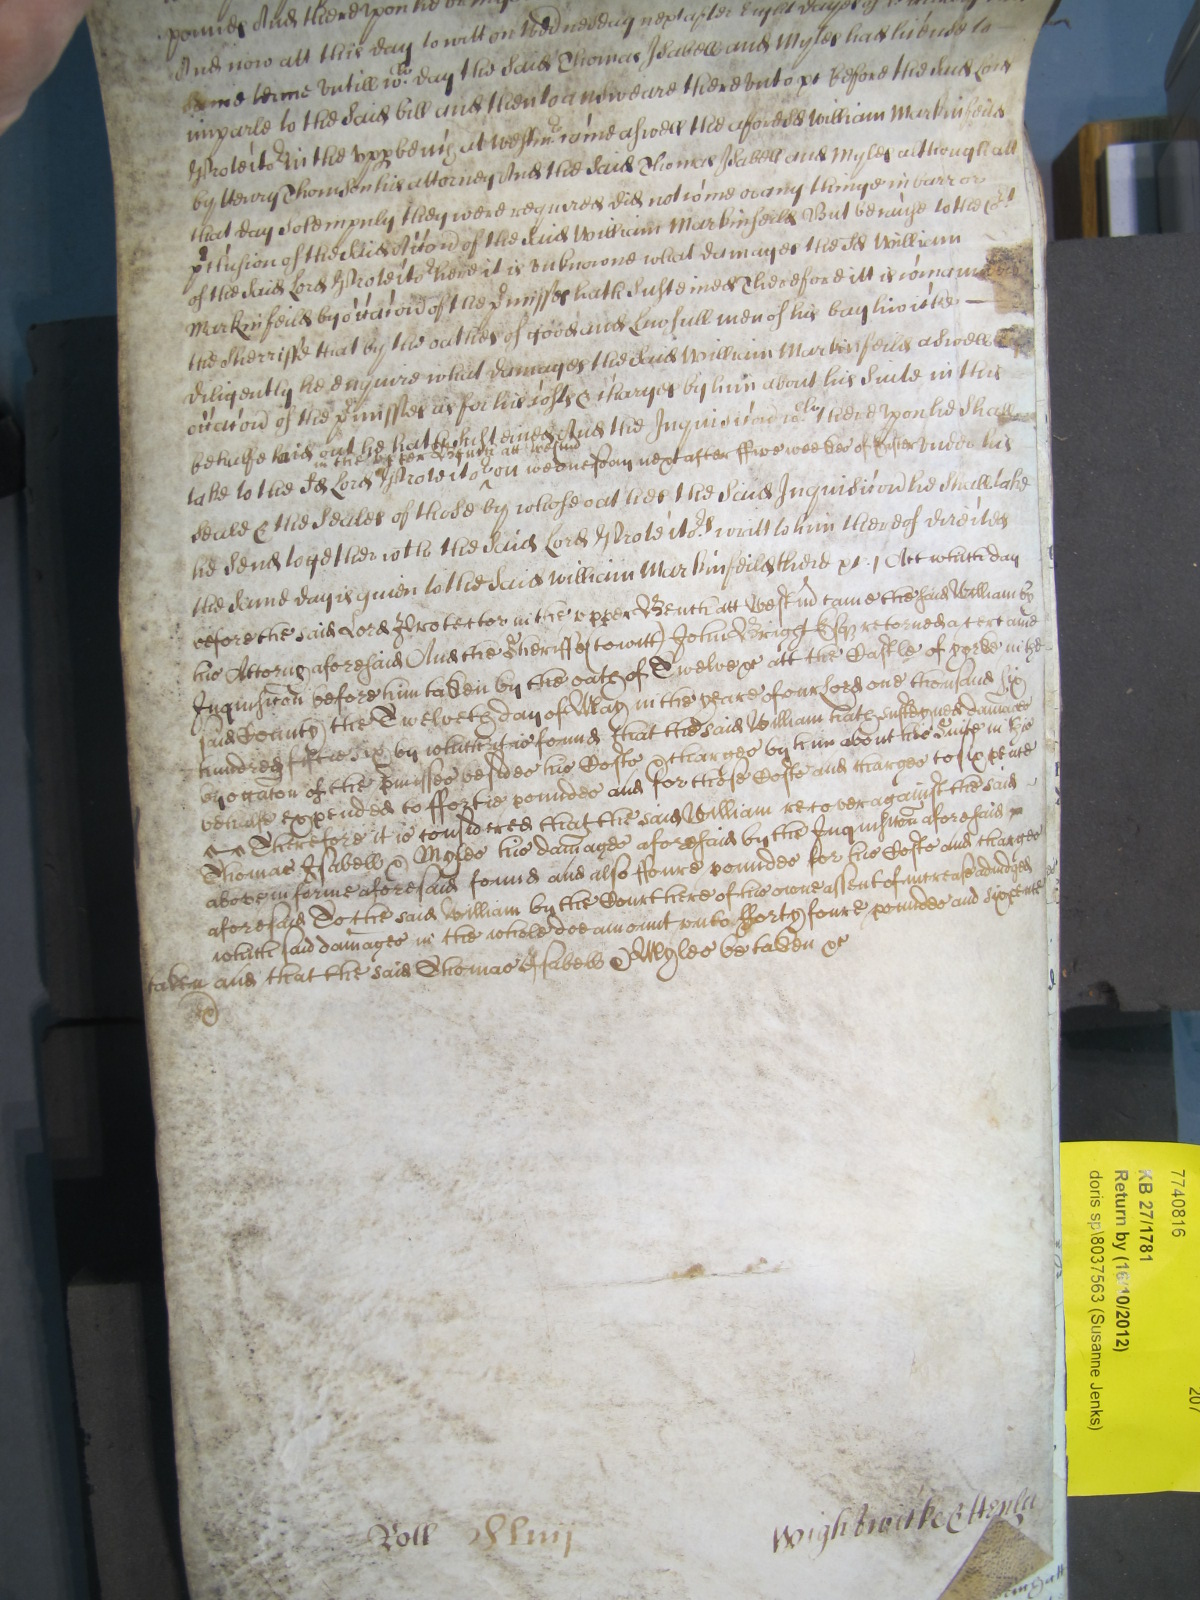 pounds And thereupon he bringe
And now att this day to witt on Wednesday next after Eight dayes of
same terme untill wch day the said Thomas Isabell and Myles had licence to
imparle to the said bill and then to answeare thereunto &c Before the said Lord
Protector in the upp bench at Westmr came aswell the aforesd William Markinfeild
by Henry Thomson his attorney And the said Thomas Isabell and Myles although att
that day solempnly they were required did not come or any thinge in barr or
pclusion of the said accon of the said William Markinfeild But because to the Cort
of the said Lord Protector here it is unknowne what damages the sd William
Markinfeild by occacon of the pmisses hath susteined Therefore itt is comannded
the Sherriffe that by the oathes of good and lawfull men of his bayliwicke
diligently he enquire what damages the said William Markinfeild aswell by
occacon of the pmisses as for his costs & charges by him about his suite in this
behalfe laid out he hath susteined And the Inquisicon wch thereupon he shall
in the upper Bench att Westmr
take to the sd Lord Protector on wednesday next after ffive weekes of Easter under his
seale & the seales of those by whose oathes the said Inquisicon he shall take
he send together wth the said Lord Protectors writt to him thereof directed
the same day is given to the said William Markinfeild there &c / Att which day
before the said Lord Protector in the upper Bench att Westmr came the said William by
his Attorny aforesaid And the Sheriffe (to witt) John Brigg Esqr retorned a certaine
Inquisicon before him taken by the oath of Twelve &c att the Castle of Yorke in the
said County the Twelveth day of May in the yeare of our Lord one thousand six
hundred fiftie six by which it is found that the said William hath susteyned damages
by occacon of the pmisses besides his Costs & charges by him about his Suite in this
behalfe expended to ffortie pounds and for those Costs and charges to sixpence
Therefore it is considered that the said William recover against the said
Thomas Isabell & Myles his damages aforesaid by the Inquisicon aforesaid
above in forme aforesaid found and also ffoure poundes for his Costs and charges
aforesaid To the said William by the Court here of his owne assent of increase adiudged
which said damages in the whole doe amount unto fforty foure pounds and sixpence
taken and that the said Thomas Isabell & Myles be taken &c
Roll xLiiij
Wightwicke & Henly
7740816
KB 27/1781
Return by (16/10/2012)
doris sp\8037563 (Susanne Jenks)
207